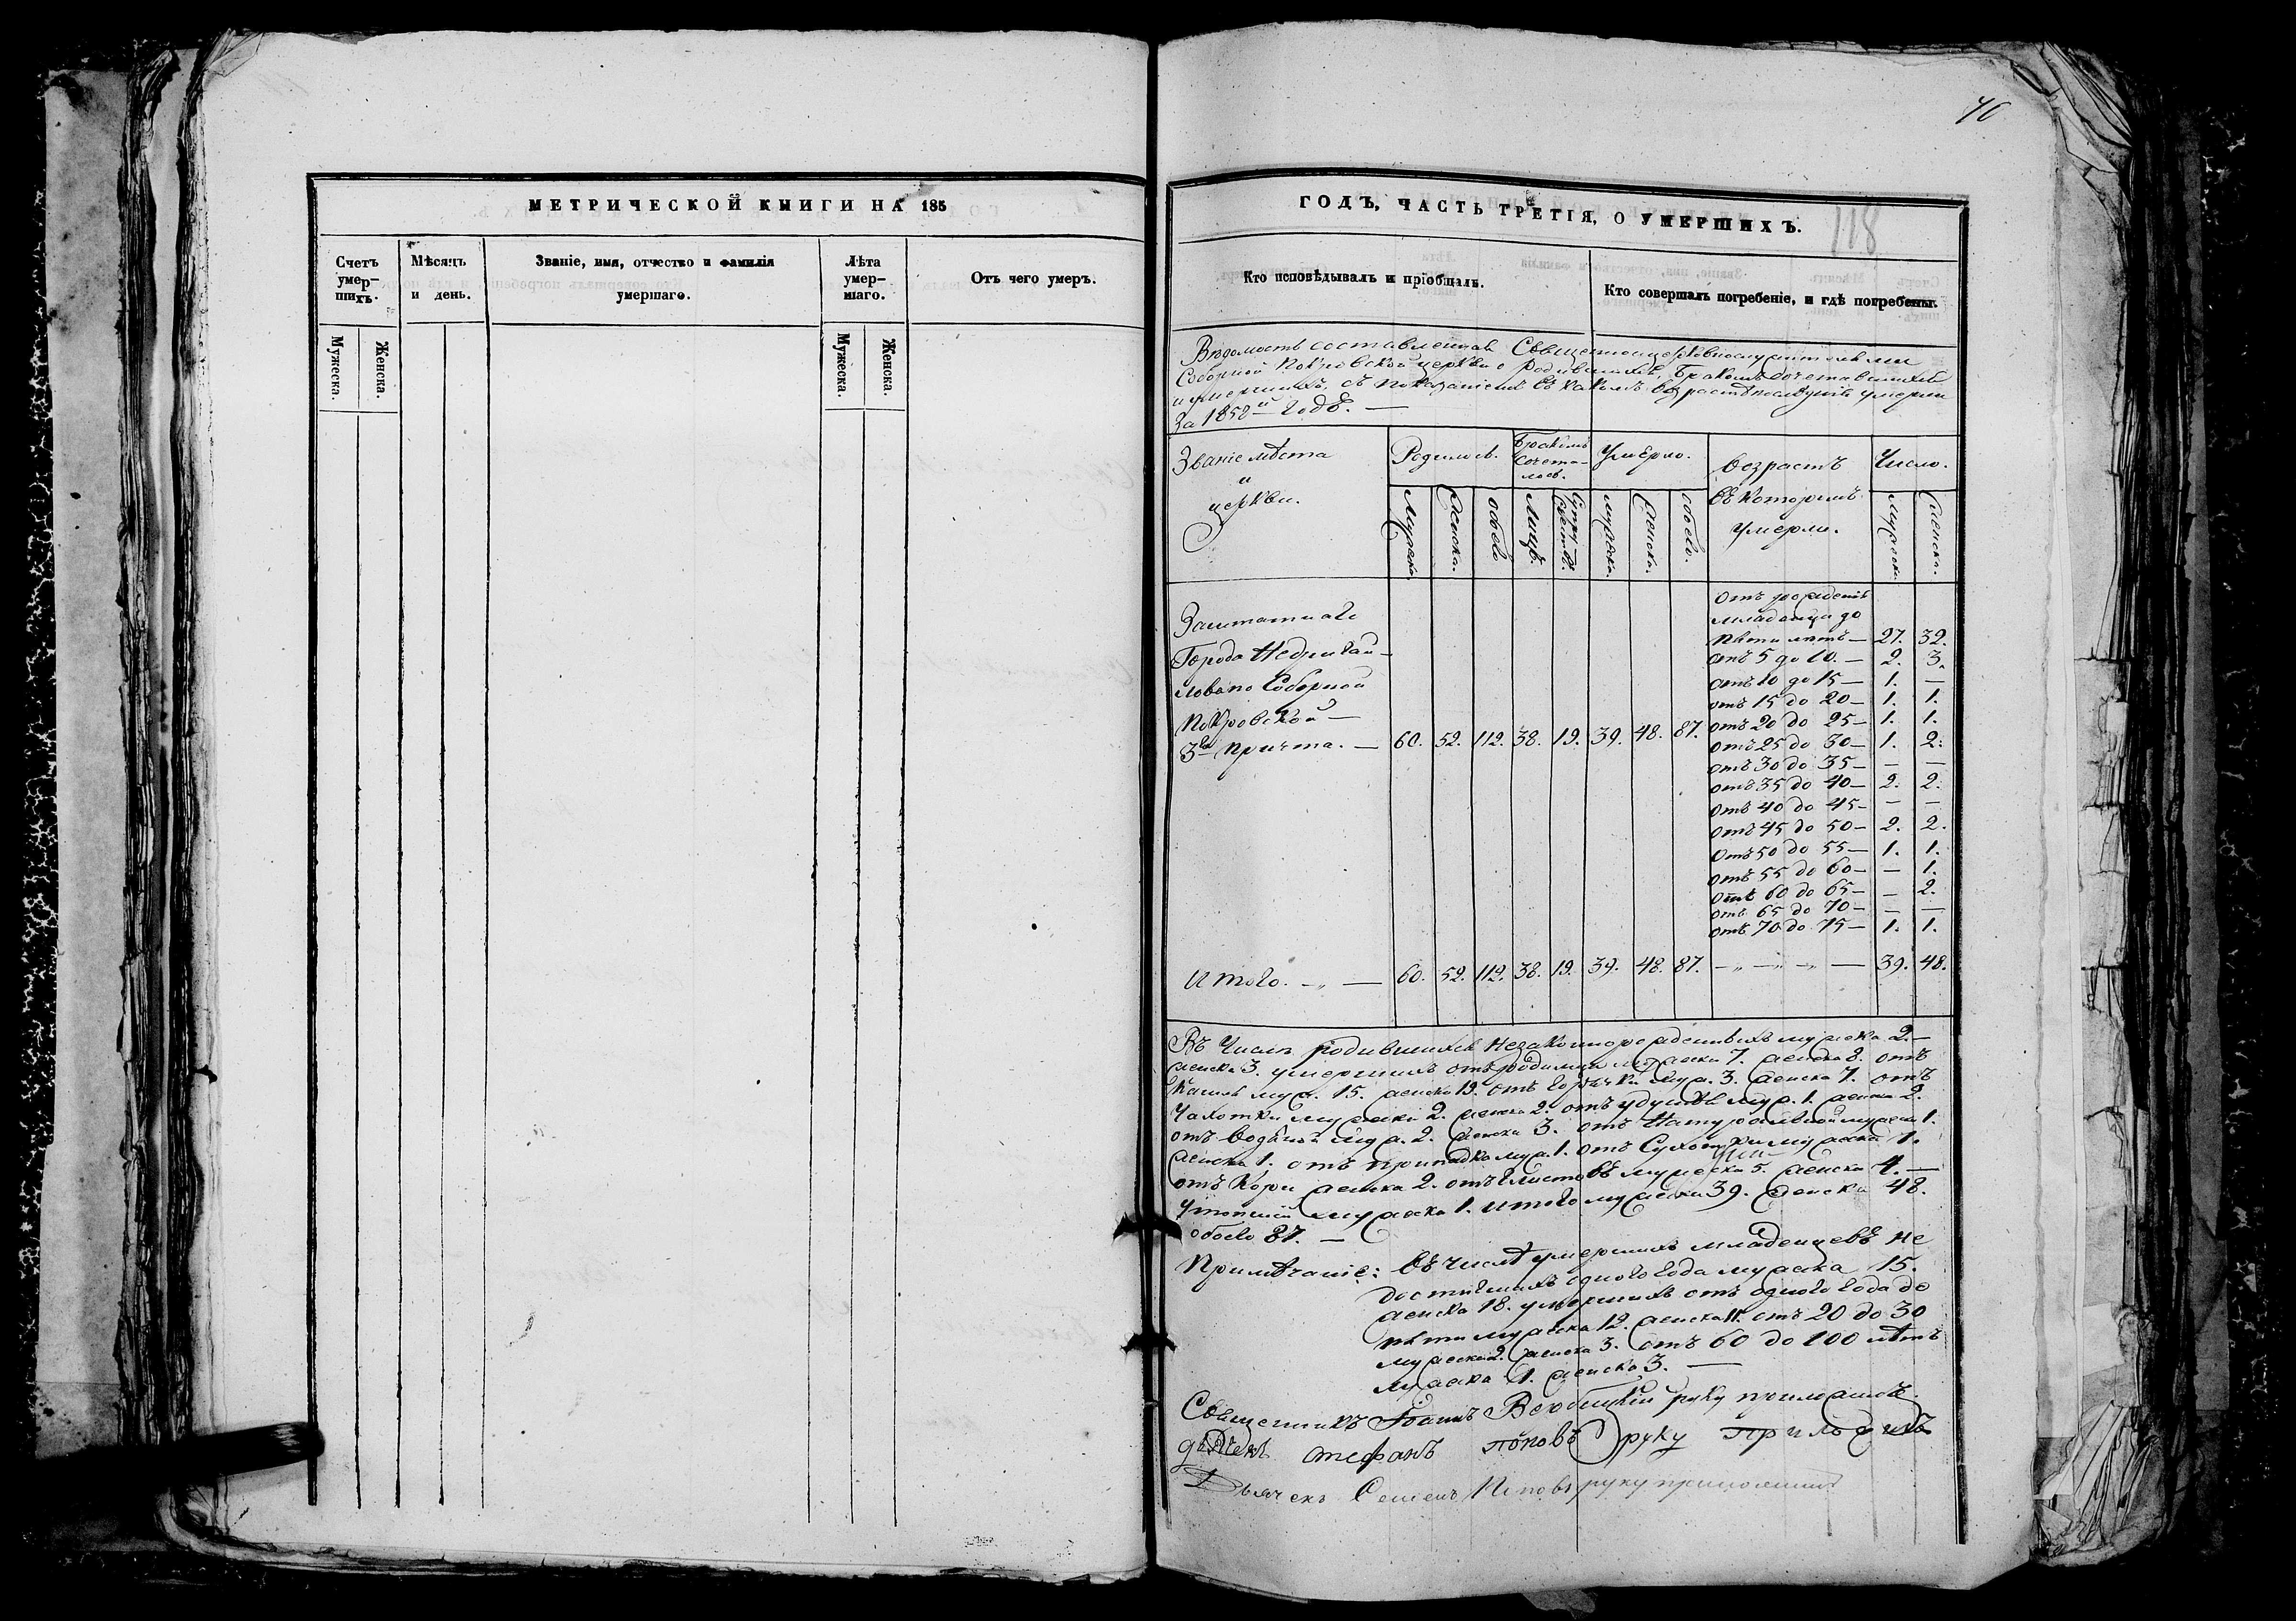 МЕТРИЧЕСКОЙ КНИГИ НА 185
Счетъ умер-шихъ.
Мѣсяцъ и день.
Званіе, имя, отчество и фамилія умершаго.
Лѣта умер-шаго.
Отъ чего умеръ.
Мужеска.
Женска.
Мужеска.
Женска.
46
ГОДЪ, ЧАСТЬ ТРЕТІЯ, О УМЕРШИХЪ.
118
Кто исповѣдывалъ и пріобщалъ.
Кто совершалъ погребеніе, и гдѣ погребены.
Вѣдомость составленная Священноцерковнослужителями
Соборной Покровской церкви о родившихся, бракомъ сочетавшихся
и умершихъ, съ показаніемъ въ какомъ возрастѣ послѣдніе умерли
За 1852-й годъ. —
Званіе мѣста и церкви.
Родилось.
Бракомъ сочета-лось.
Умерло.
Возрастъ въ которомъ умерли.
Число.
Мужеска.
Женска.
Обоего
Лицъ.
Супру-жествъ.
Мужеска.
Женска.
Обоего.
Мужеска.
Женска.
Заштатнаго
Города Недригай-
лова по Соборной
Покровской —
3го Причта. — 60. 52. 112. 38. 19. 39. 48. 87.
Отъ рожденія
младенца до
пяти лѣтъ — 27. 32.
отъ 5 до 10. — 2. 3.
отъ 10 до 15 — 1. —
отъ 15 до 20 — 1. 1.
отъ 20 до 25 — 1. 1.
отъ 25 до 30 — 1. 2.
отъ 30 до 35 — — —
отъ 35 до 40 — 2. 2.
отъ 40 до 45 - — —
отъ 45 до 50 — 2. 2.
отъ 50 до 55 — 1. 1.
отъ 55 до 60 — — 1.
отъ 60 до 65 — — 2.
отъ 65 до 70 — — —
отъ 70 до 75 — 1. 1.
Итого. — „ — 60. 52. 112. 38. 19. 39. 48. 87. — „ — „ — „ — 39. 48.
Въ числѣ родившихся незаконнорожденныхъ мужеска 2. —
женска 3. умершихъ отъ родимца мужеска 7. женска 8. отъ
Кашля муж. 15. женска 19. отъ горячки муж. 3. женска 7. отъ
Чахотки мужеска 2. женска 2. отъ удушья муж. 1. женска 2.
отъ водяной муж. 2. женска 3. отъ Натуральной мужеска 1.
женска 1. отъ припадка муж. 1. отъ Сухотки мужеска 1.
отъ Кори женска 2. отъ глистовъ мужеска 5. женска 4. —
Утопшій мужеска 1. Итого мужеска 39. женска 48.
обоего 87. —
Примѣчаніе: Въ числѣ умершихъ младенцевъ не
достигшихъ одного года мужеска 15.
женска 18. умершихъ отъ одного года до
пяти мужеска 12. женска 11. отъ 20 до 30
мужеска 2. женска 3. отъ 60 до 100 лѣтъ
мужеска 1. женска 3. —
Священникъ Іоаннъ Вербицкій руку приложилъ.
дьячекъ стефанъ поповъ руку приложилъ
Дьячекъ Семенъ Поповъ руку приложилъ